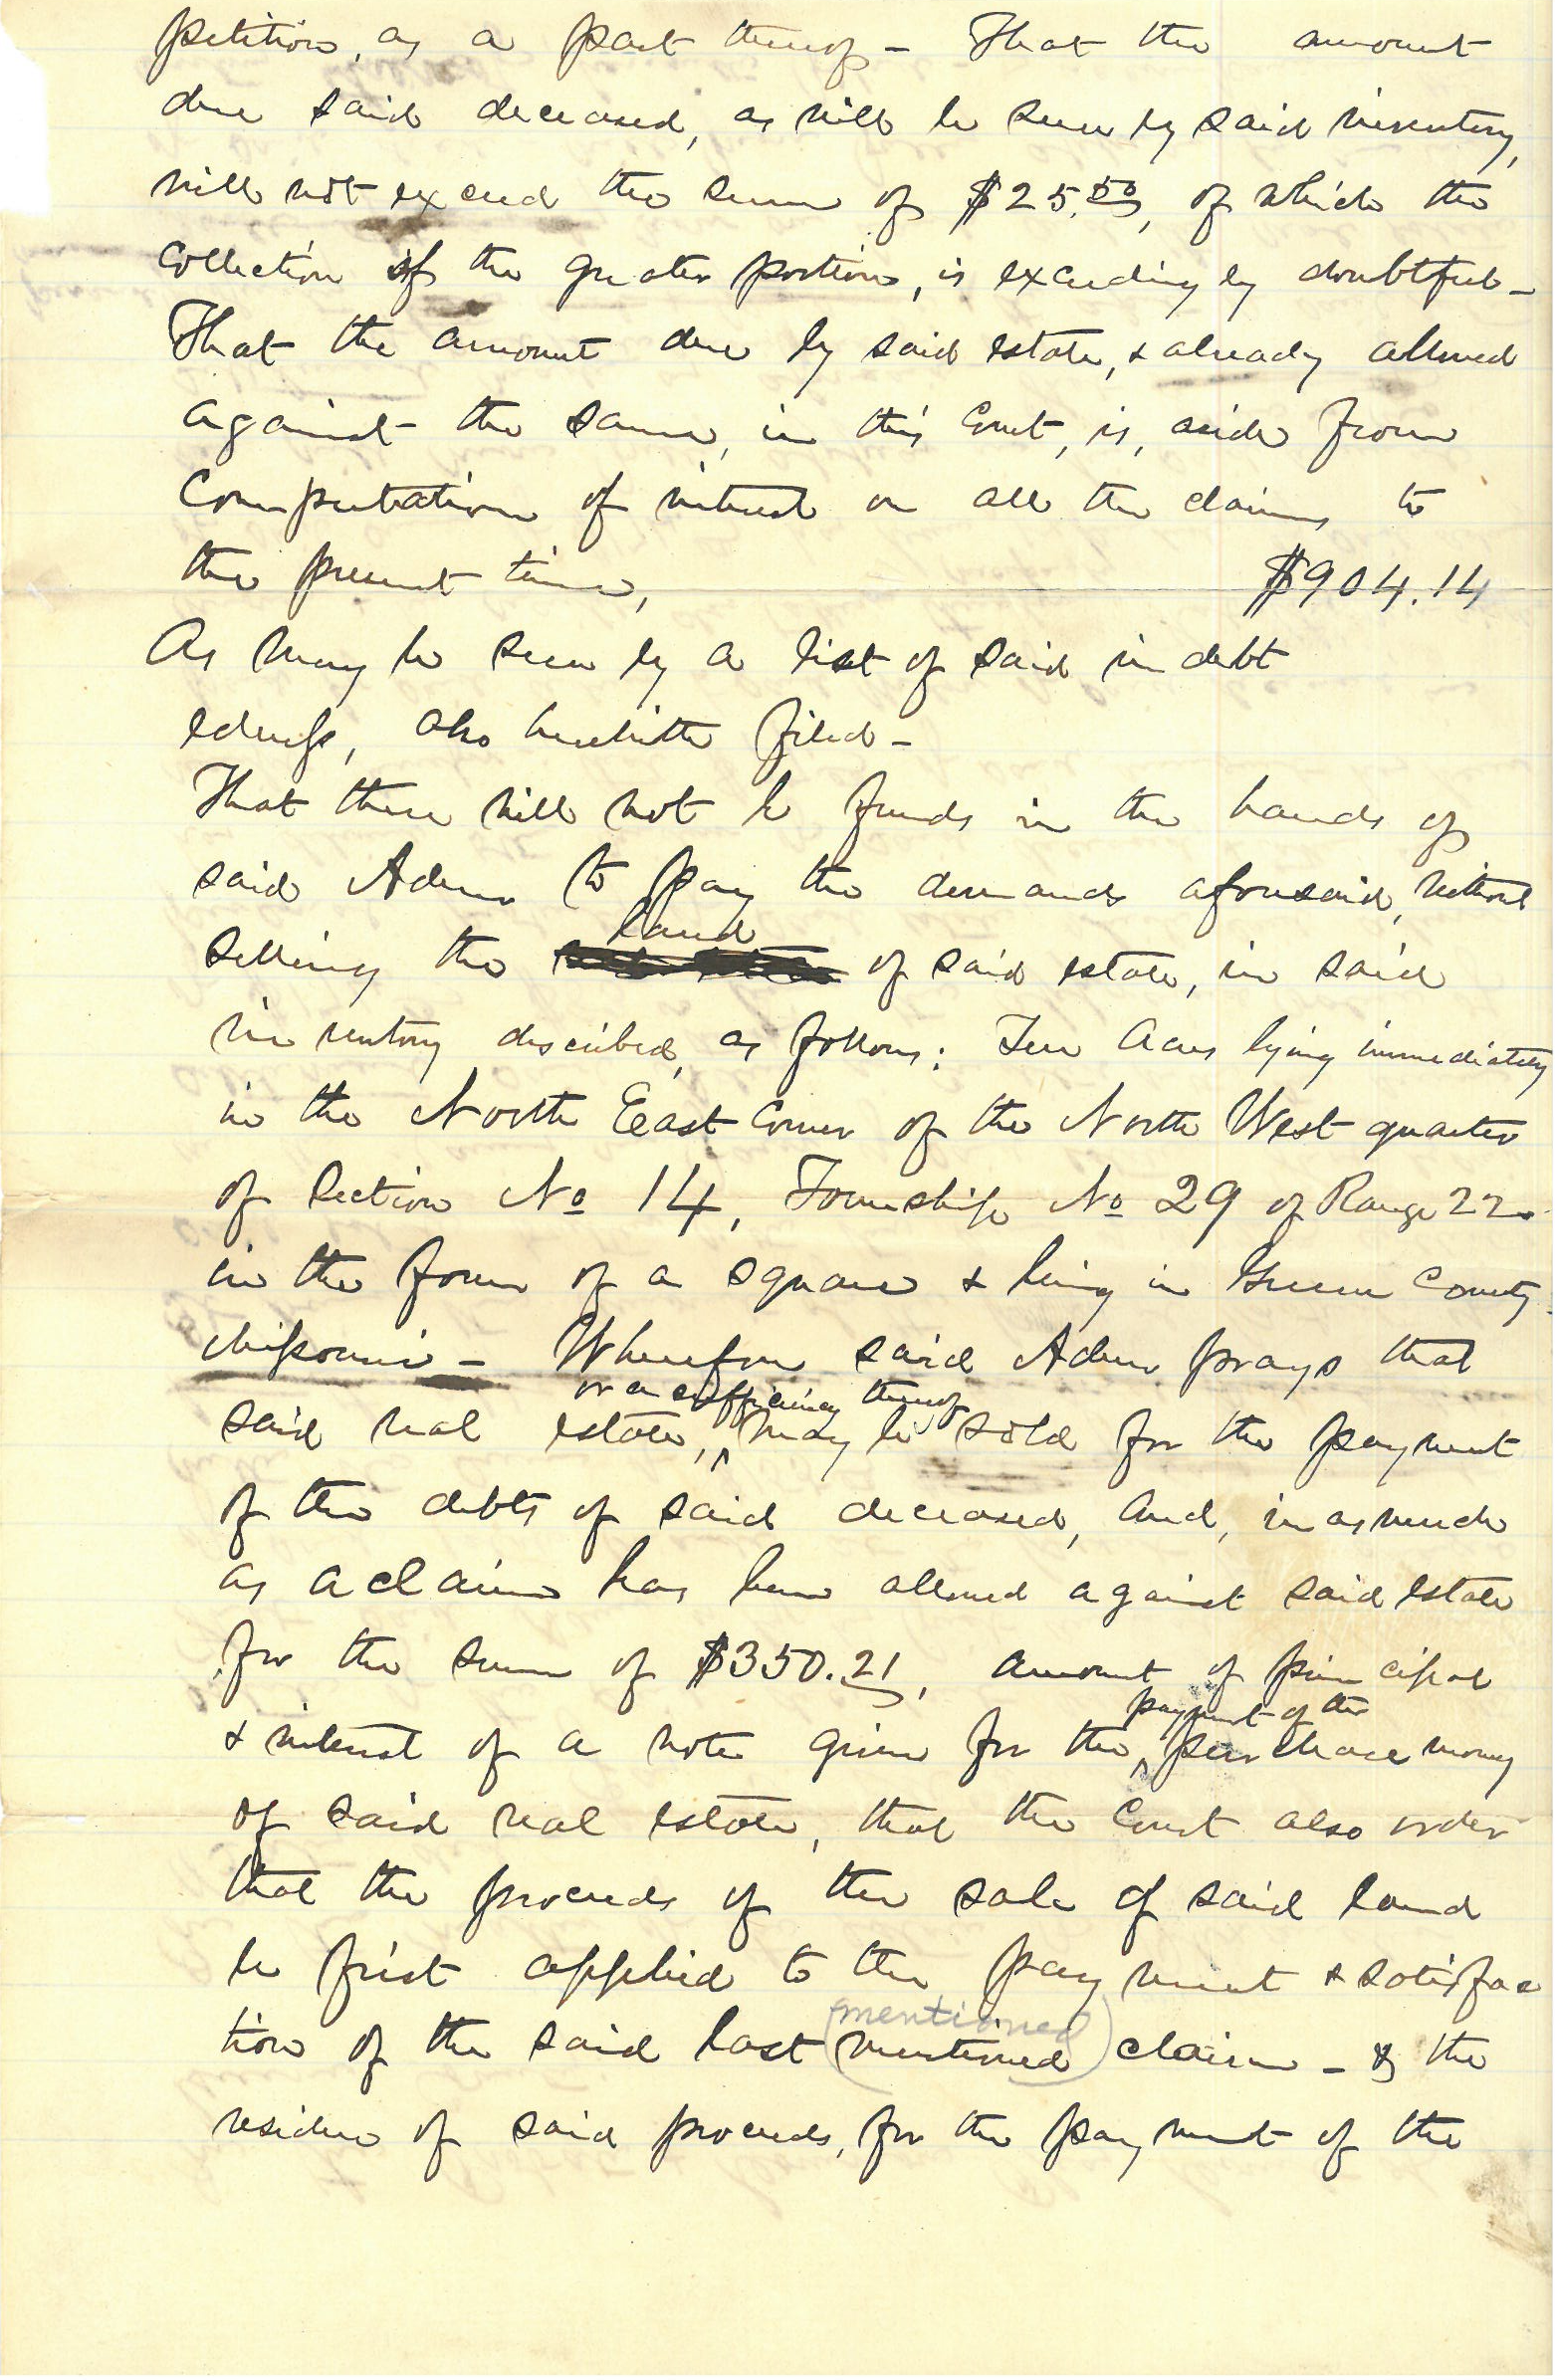 petition, as a part thereof - That the amount
due said deceased, as will be seen by said inventory,
will not exceed the sum of $25.50, of which the
collection of the greater portion, is exceedingly doubtful -
That the amount due by said estate, & already allowed
against the same, in this Court, is, aside from
Computation of interest on all the claims to
the present time, $904.14
As may be seen by a list of said indebt
edness, also herewith filed -
That there will not be funds in the hands of
said Admr to pay the demands aforesaid, without
land
selling the of said estate, in said
inventory described, as follows: Ten Acres lying immediately
in the North East Corner of the North West quarter
of Section No 14, Township No 29 of Range 22
in the form of a square & being in Greene County
Missouri - Wherefore said Admr prays that
or a sufficiency thereof
said real estate, ^ may be sold for the payment
of the debts of said deceased, And, in as much
as a claim has been allowed against said estate
for the sum of $350.21, amount of principal
payment of the
& interest of a note given for the ^ purchase money
of said real estate, that the Court also order
that the proceeds of the sale of said land
be first applied to the payment & satisfac
(mentioned)
tion of the said last mentioned claim - & the
residue of said proceeds, for the payment of the